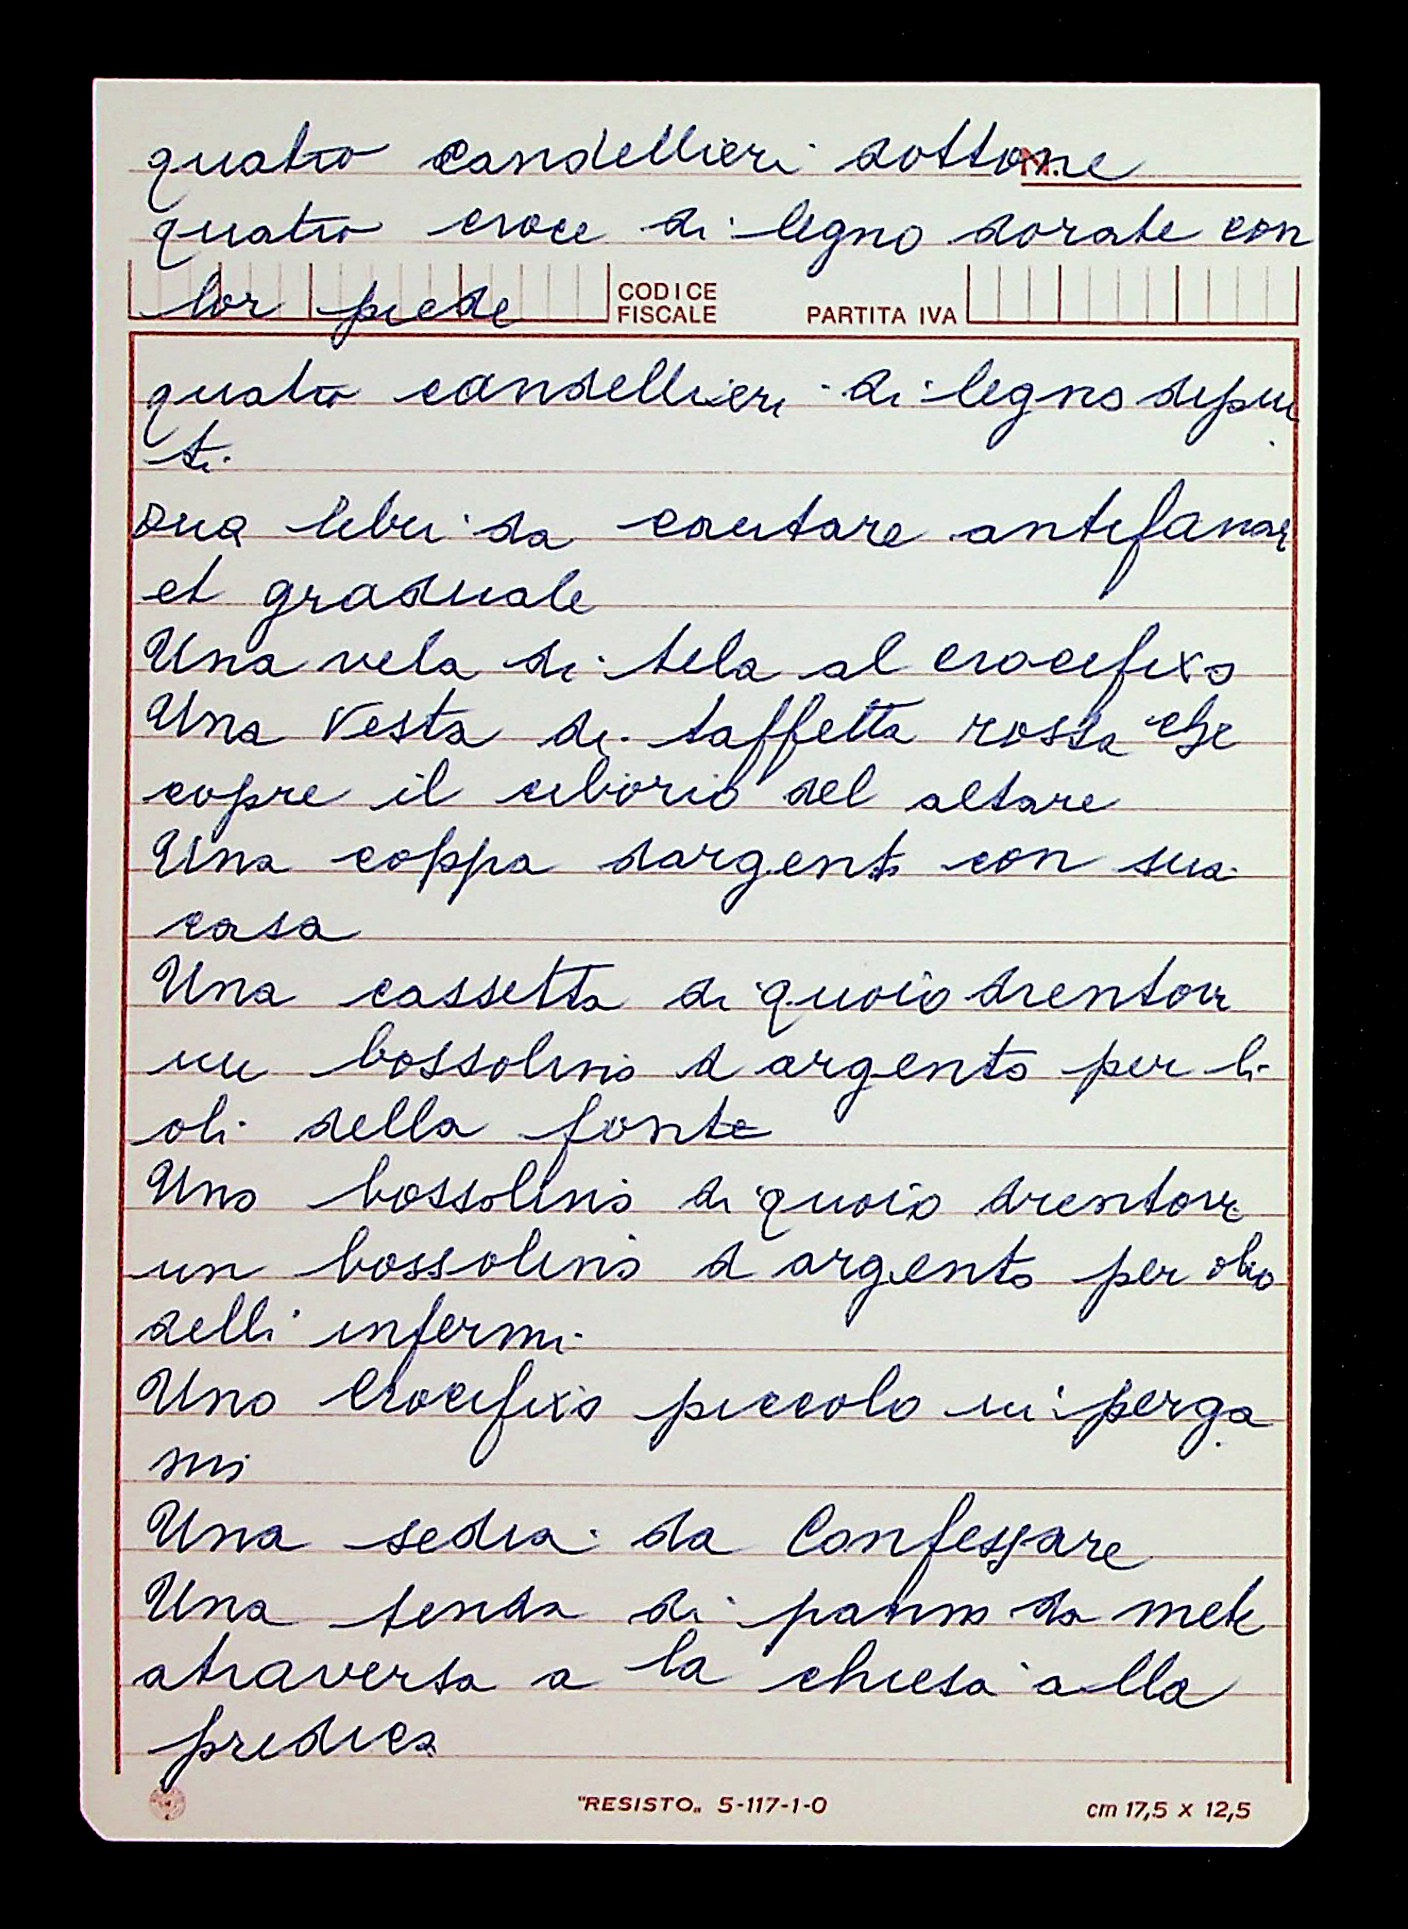 quatro candellieri dottone
N.
quatro croce di legno dorate con
lor piede
CODICE
FISCALE
PARTITA IVA
quatro candellieri di legno depin
ti
Dua libri da cantare antifanar
et graduale
Una vela di tela al crocifixo
Una vesta di taffetta rossa che
copre il ciborio del altare
Una coppa dargento con sua
casa
Una cassetta di quoio drentovi
un bossolino d argento per li
oli della fonte
Uno bossolino di quoio drentovi
un bossolino d argento per olio
delli infermi
Uno Crocifixo piccolo in perga
mi
Una sedia da Confessare
Una tenda di panno da mete
atraversa a la chiesa alla
predica
"RESISTO" 5-117-1-0
cm 17,5 x 12,5